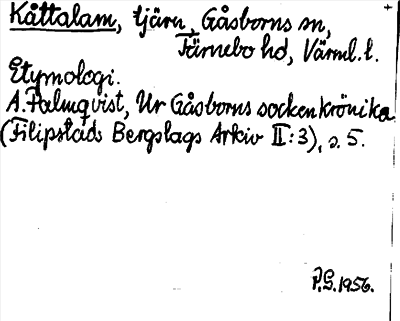 Kåttalam, tjärn, Gåsborns sn,
Färnebo hd, Värml. l.
Etymologi.
A. Palmqvist, Ur Gåsborns sockenkrönika
(Filipstads Bergslags Arkiv II:3), s. 5.
P.G. 1956.